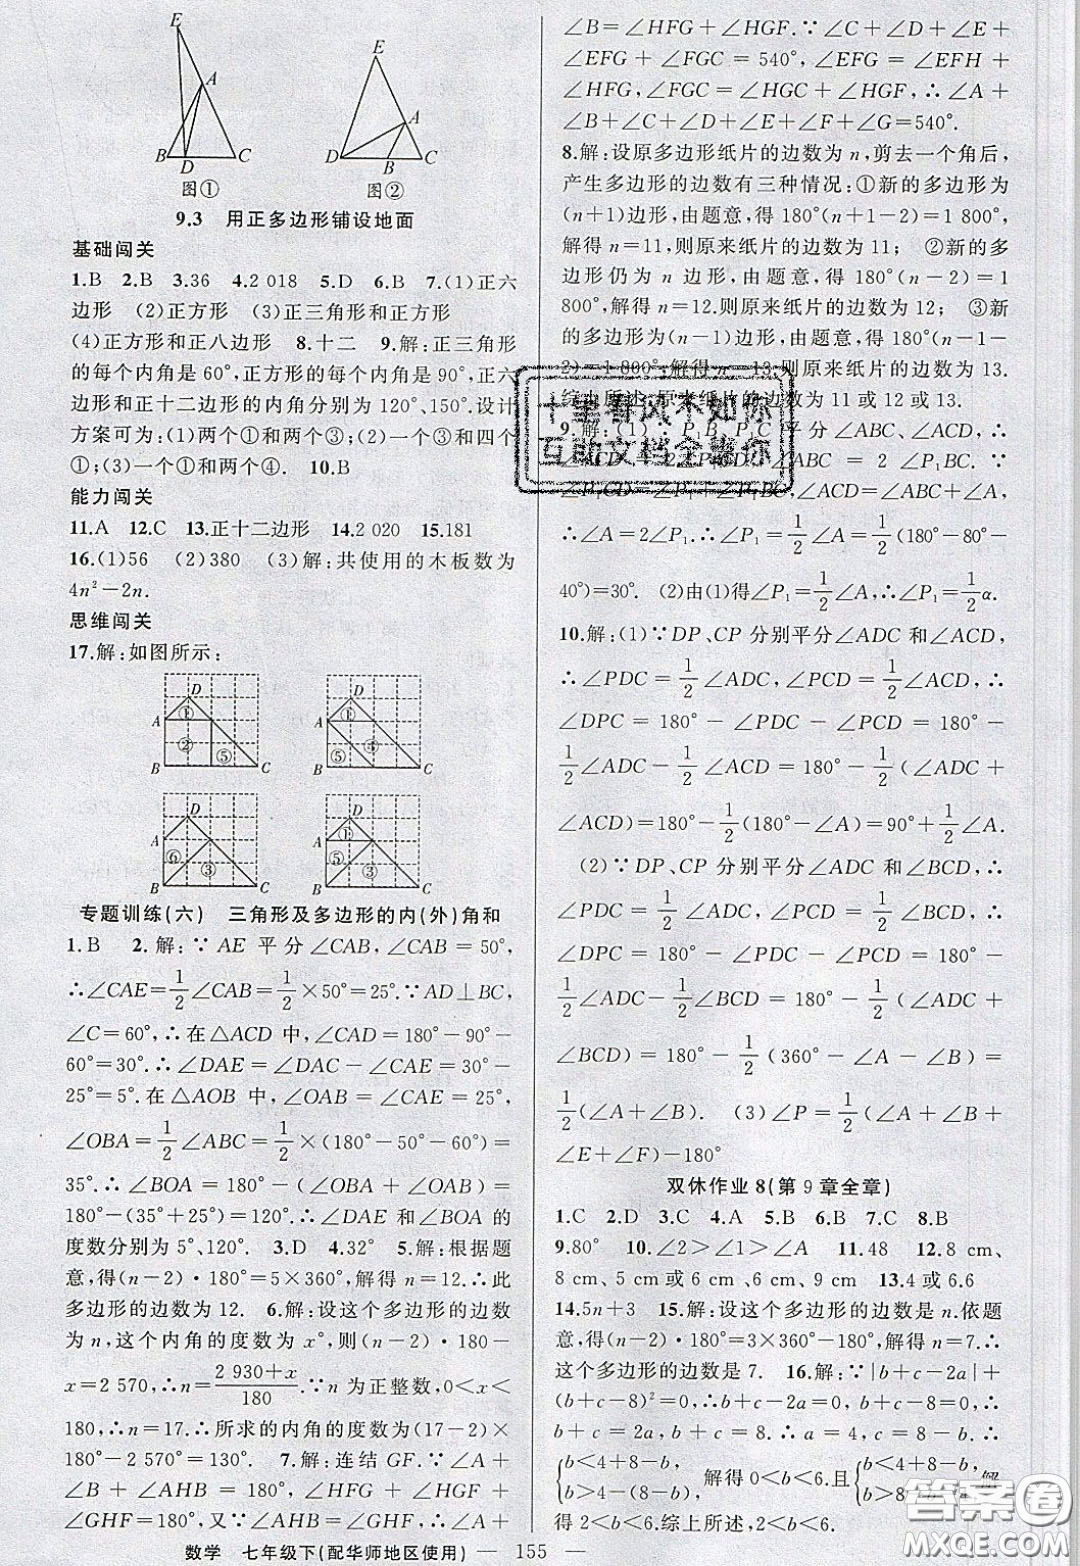 E
A
B D C
图①
E
A
D B C
图②
9.3 用正多边形铺设地面
基础闯关
1.B 2.B 3.36 4.2 018 5.D 6.B 7.(1)正六
边形 (2)正方形 (3)正三角形和正方形
(4)正方形和正八边形 8.十二 9.解:正三角形
的每个内角是60°,正方形的每个内角是90°,正六
边形和正十二边形的内角分别为120°、150°.设计
方案可为:(1)两个①和两个③;(2)一个③和四个
①;(3)一个①和两个④. 10.B
能力闯关
11.A 12.C 13.正十二边形 14.2 020 15.181
16.(1)56 (2)380 (3)解:共使用的木板数为
4n²-2n.
思维闯关
17.解:如图所示:
D ① A ② ⑤ B C
D ① A ④ ⑤ B C
D A ⑥ ③ B C
D ① A ⑤ ③ B C
专题训练(六) 三角形及多边形的内(外)角和
1.B 2.解:∵AE 平分∠CAB,∠CAB=50°,
∴∠CAE=1/2∠CAB=1/2×50°=25°.∵AD⊥BC,
∠C=60°,∴在△ACD 中,∠CAD=180°-90°-
60°=30°.∴∠DAE=∠DAC-∠CAE=30°-
25°=5°.在△AOB 中,∠OAB=∠CAE=25°,
∠OBA=1/2∠ABC=1/2×(180°-50°-60°)=
35°.∴∠BOA=180°-(∠OAB+∠OBA)=
180°-(35°+25°)=120°.∴∠DAE 和∠BOA 的
度数分别为5°、120°. 3.D 4.32° 5.解:根据题
意,得(n-2)·180°=5×360°,解得 n=12.∴此
多边形的边数为12. 6.解:设这个多边形的边数
为n,这个内角的度数为x°,则(n-2)·180-
x=2 570,n=(2 930+x)/180.∵n 为正整数,0<x<
180,∴n=17.∴所求的内角的度数为(17-2)×
180°-2 570°=130°. 7.解:连结 GF.∵∠A+
∠B+∠AHB=180°,∠HFG+∠HGF+
∠GHF=180°,又∵∠AHB=∠GHF,∴∠A+
∠B=∠HFG+∠HGF.∵∠C+∠D+∠E+
∠EFG+∠FGC=540°,∠EFG=∠EFH+
∠HFG,∠FGC=∠HGC+∠HGF,∴∠A+
∠B+∠C+∠D+∠E+∠F+∠G=540°.
8.解:设原多边形纸片的边数为n,剪去一个角后,
产生多边形的边数有三种情况:①新的多边形为
(n+1)边形,由题意,得180°(n+1-2)=1 800°,
解得n=11,则原来纸片的边数为11; ②新的多
边形仍为 n 边形,由题意,得180°(n-2)=1
800°,解得n=12.则原来纸片的边数为12; ③新
的多边形为(n-1)边形,由题意,得180°(n-1-
2)=1 800°,解得 n=13.则原来纸片的边数为13.
综上所述,原来纸片的边数为11或12或13.
9.解:(1)∵P₁B、P₁C平分∠ABC、∠ACD,∴
∠ACD=2∠P₁CD,∠ABC=2∠P₁BC.∵
∠P₁CD=∠P₁+∠P₁BC,∠ACD=∠ABC+∠A,
∴∠A=2∠P₁.∴∠P₁=1/2∠A=1/2(180°-80°-
40°)=30°. (2)由(1)得∠P₁=1/2∠A,∴∠P₁=1/2α.
10.解:(1)∵DP、CP 分别平分∠ADC 和∠ACD,
∴∠PDC=1/2∠ADC,∠PCD=1/2∠ACD.∴
∠DPC=180°-∠PDC-∠PCD=180°-
1/2∠ADC-1/2∠ACD=180°-1/2(∠ADC+
∠ACD)=180°-1/2(180°-∠A)=90°+1/2∠A.
(2)∵DP、CP 分别平分∠ADC 和∠BCD,∴
∠PDC=1/2∠ADC,∠PCD=1/2∠BCD.∴
∠DPC=180°-∠PDC-∠PCD=180°-
1/2∠ADC-1/2∠BCD=180°-1/2(∠ADC+
∠BCD)=180°-1/2(360°-∠A-∠B)=
1/2(∠A+∠B). (3)∠P=1/2(∠A+∠B+
∠E+∠F)-180°
双休作业8(第9章全章)
1.C 2.D 3.C 4.A 5.B 6.B 7.C 8.B
9.80° 10.∠2>∠1>∠A 11.48 12.8 cm、
8 cm、5 cm 或 6 cm、6 cm、9 cm 13.4或6.6
14.5n+3 15.解:设这个多边形的边数是n.依题
意,得(n-2)·180°=3×360°-180°,解得n=7.∴
这个多边形的边数是7. 16.解:∵|b+c-2a|+
(b+c-8)²=0,∴b+c-2a=0,b+c-8=0.∴
b+c=2a,b+c=8.∴a=4,c=8-b.∴
{b<4+8-b, b>4-(8-b), 解得0<b<6.且{b<4+8-b, b>8-b-4, 解
得2<b<6.综上所述,2<b<6.
数学 七年级下(配华师地区使用) — 155 —
十里春风不如你
互助文档全靠你
答案圈
MXQE.COM